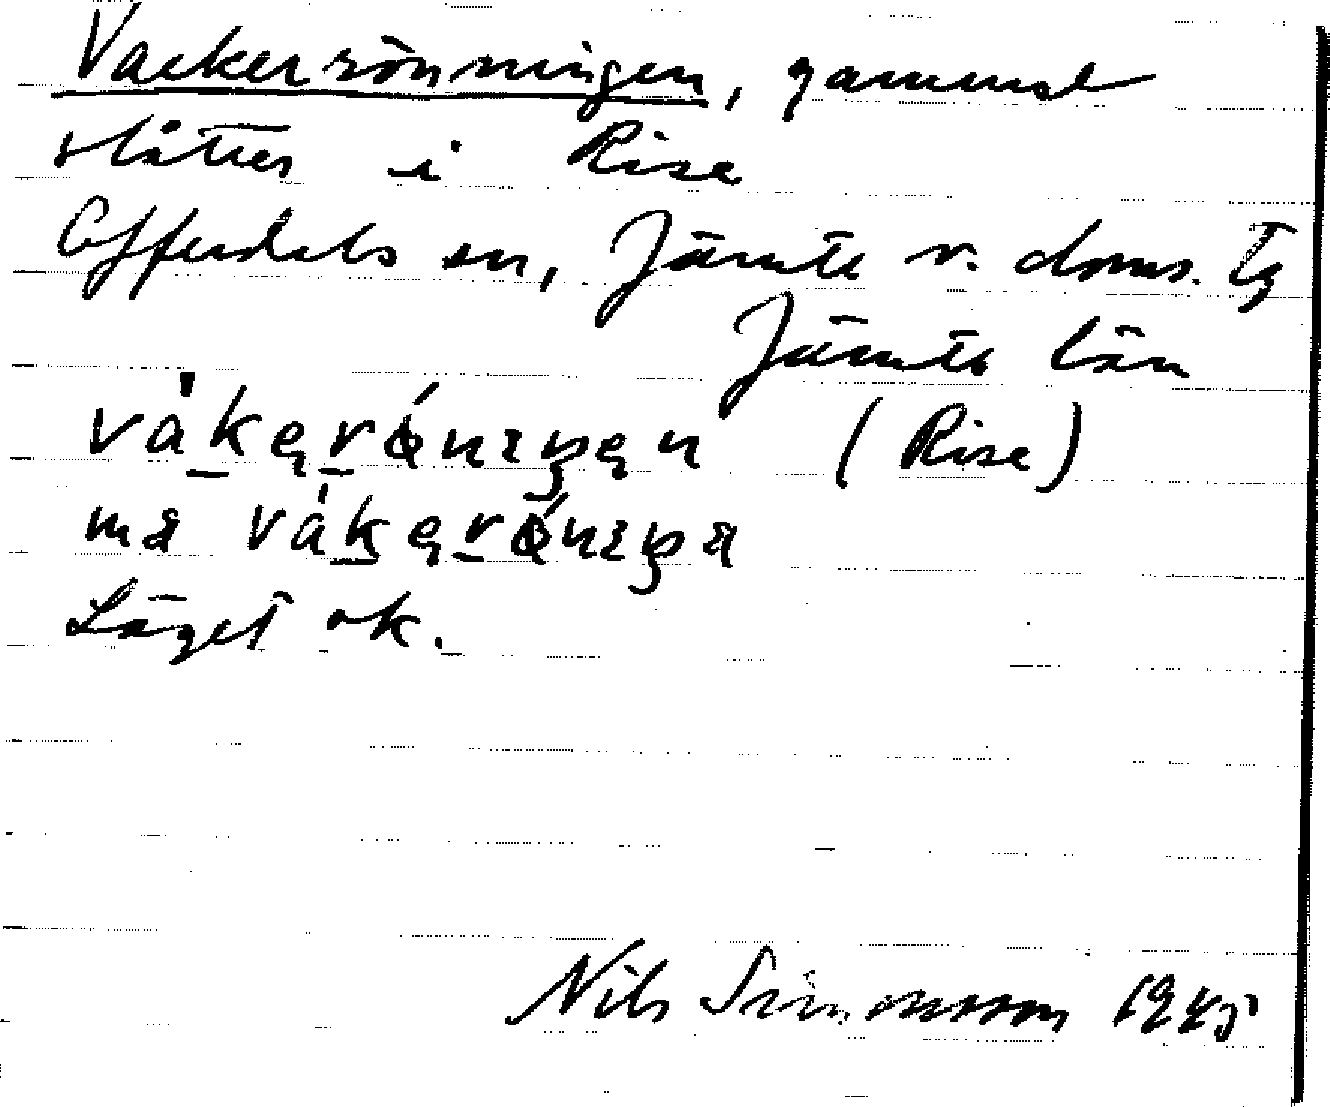 Vackerrönningen, gammal
slåtter i Rise
Offerdals sn, Jämtl v. doms. tg
Jämtl län
våkerǿningen (Rise)
må våkerǿninga
Läget ok.
Nils Simonsson 1945